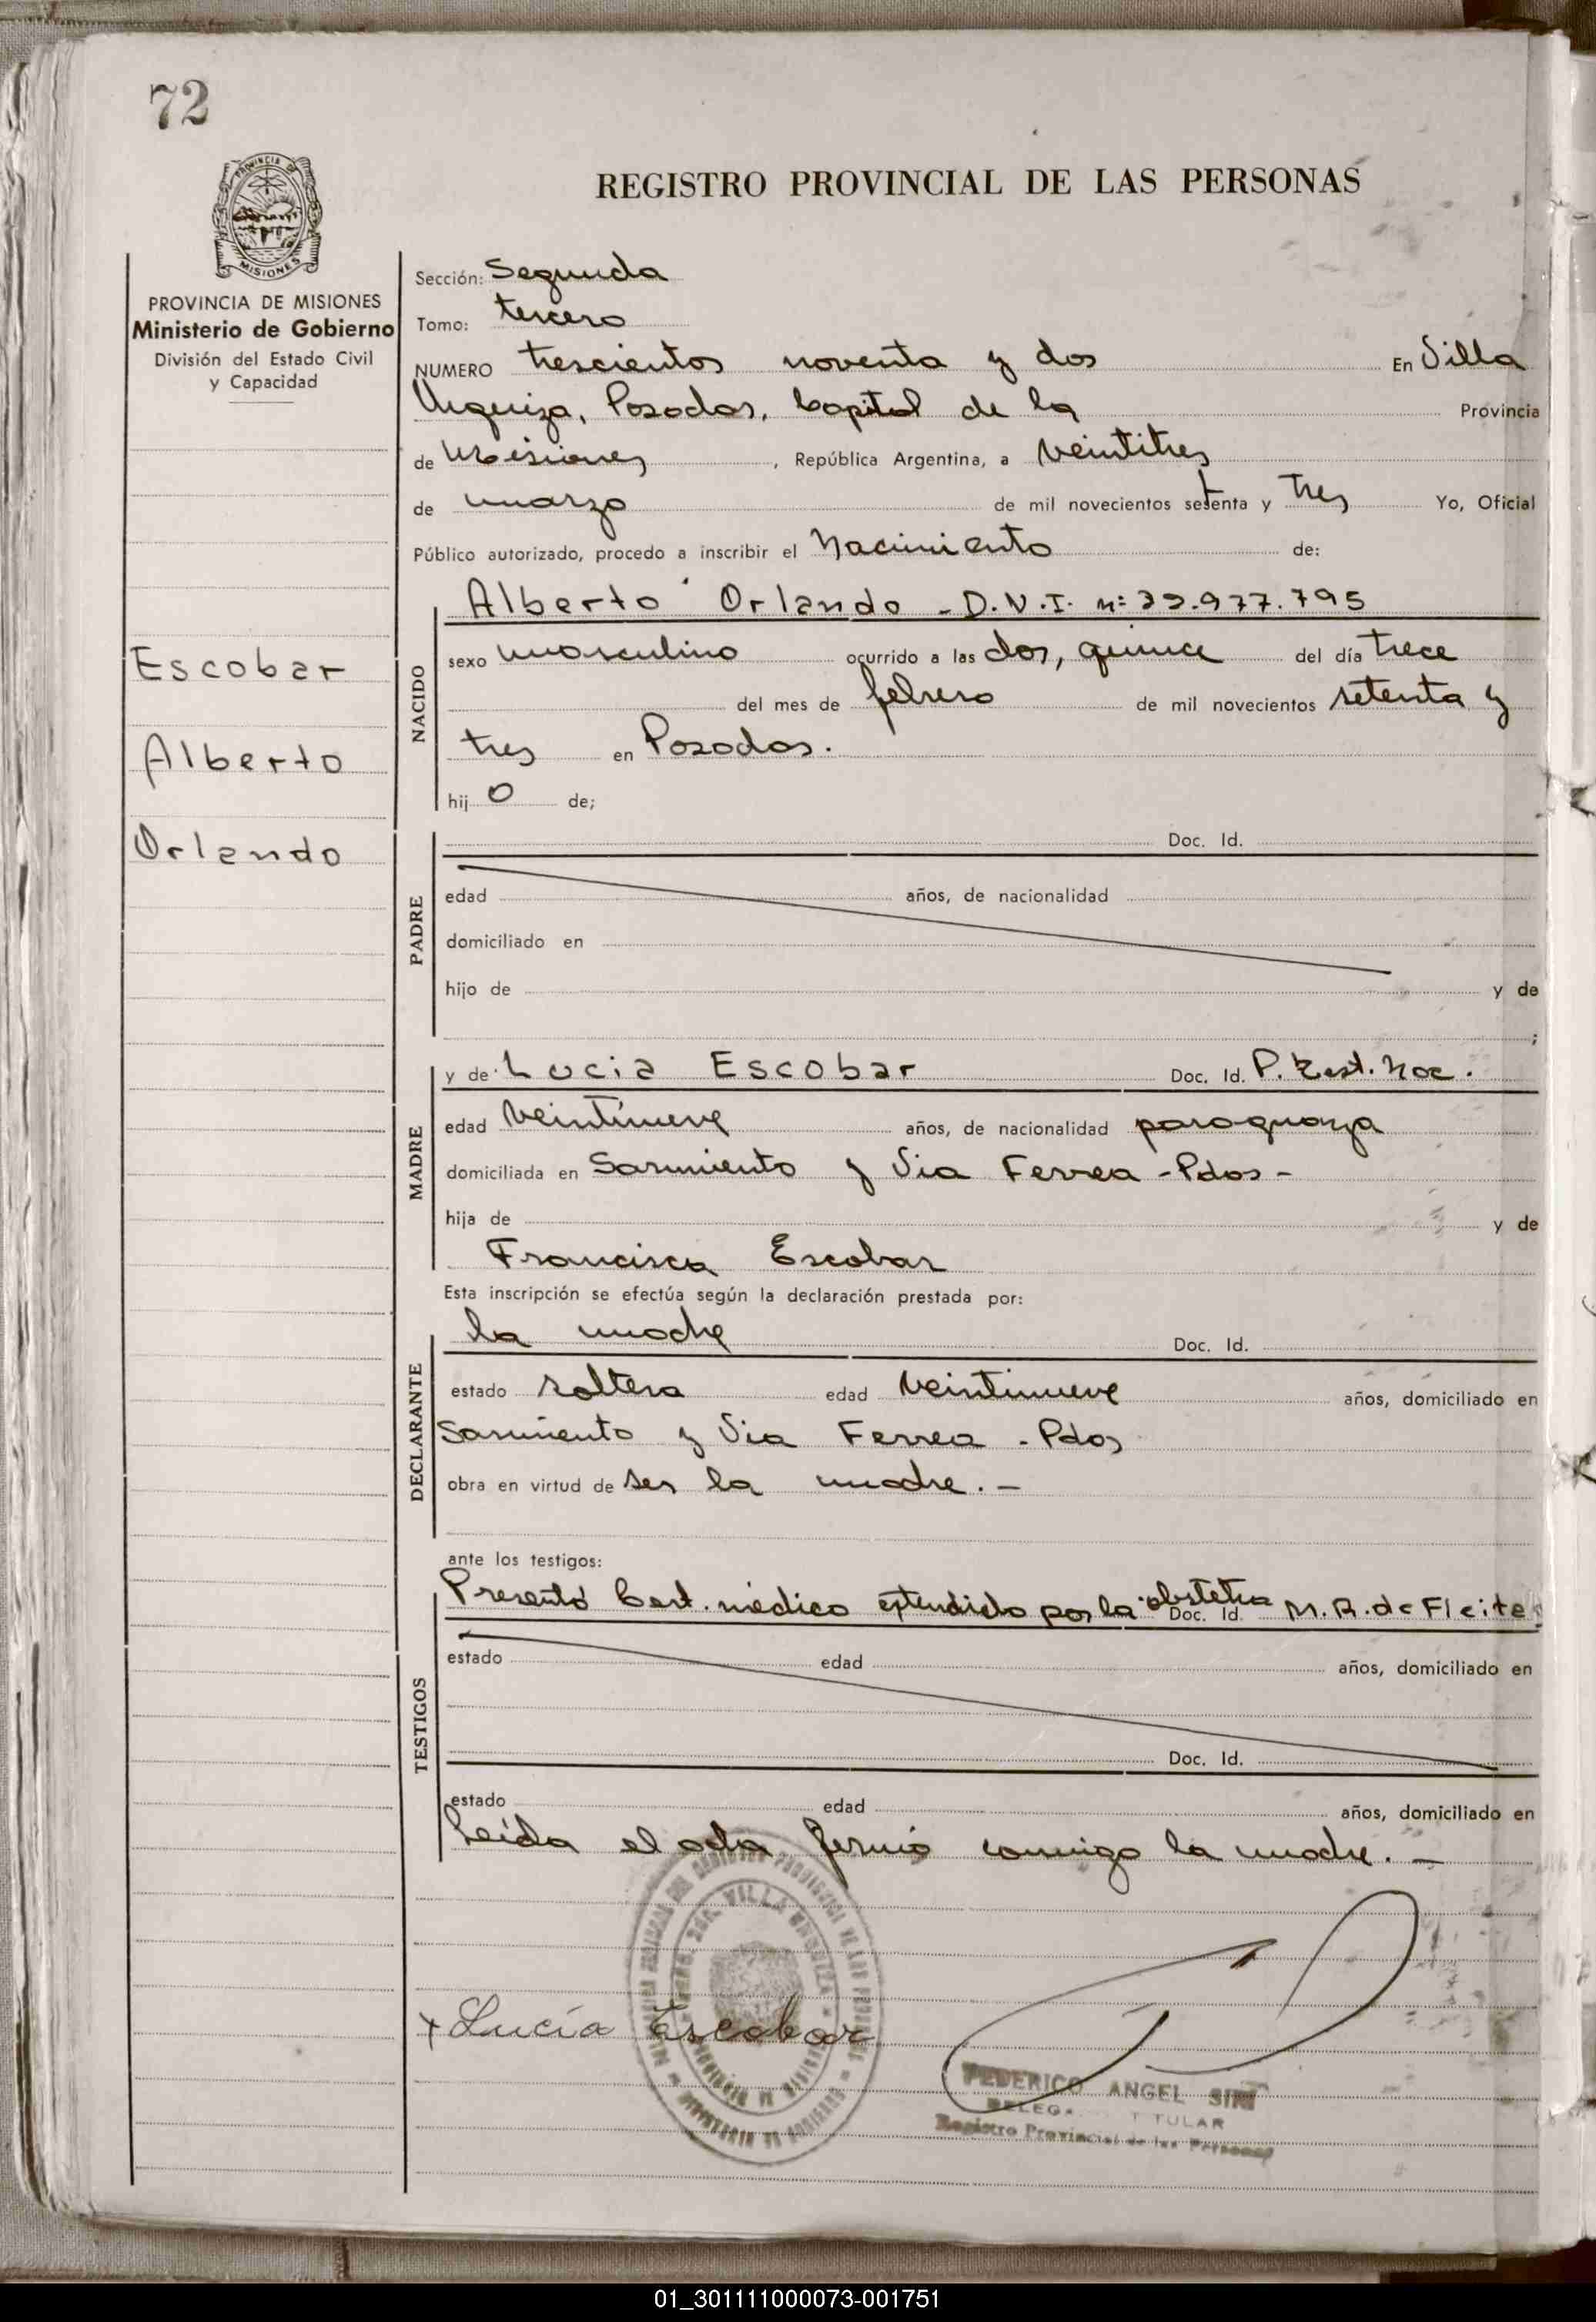 72
REGISTRO PROVINCIAL DE LAS PERSONAS
MISIONES
PROVINCIA DE MISIONES
Ministerio de Gobierno
División del Estado Civil
y Capacidad
Escobar
Alberto
Orlando
Sección: Segunda
Tomo: tercero
NUMERO trescientos noventa y dos En Villa
Urquiza, Posadas, Capital de la Provincia
de Misiones, República Argentina, a veintitres
de marzo de mil novecientos setenta y tres Yo, Oficial
Público autorizado, procedo a inscribir el Nacimiento de:
Alberto Orlando - D.N.I. nº 22.977.795
NACIDO
sexo masculino ocurrido a las dos, quince del día trece
del mes de febrero de mil novecientos setenta y
tres en Posadas.
hijo de;
PADRE
Doc. Id.
edad años, de nacionalidad
domiciliado en
hijo de y de
;
MADRE
y de Lucia Escobar Doc. Id. P. Nac.
edad veintinueve años, de nacionalidad paraguaya
domiciliada en Sarmiento y Via Ferrea - Pdas -
hija de y de
Francisca Escobar
Esta inscripción se efectúa según la declaración prestada por:
DECLARANTE
la madre Doc. Id.
estado soltera edad veintinueve años, domiciliado en
Sarmiento y Via Ferrea - Pdas
obra en virtud de ser la madre. -
ante los testigos:
TESTIGOS
Presentó Cert. médico extendido por la obstetra Doc. Id. M.R. de Fleites
estado edad años, domiciliado en
Doc. Id.
estado edad años, domiciliado en
Leída el acta firmó conmigo la madre. -
x Lucía Escobar
FEDERICO ANGEL
TITULAR
Registro Provincial de las Personas
01_301111000073-001751